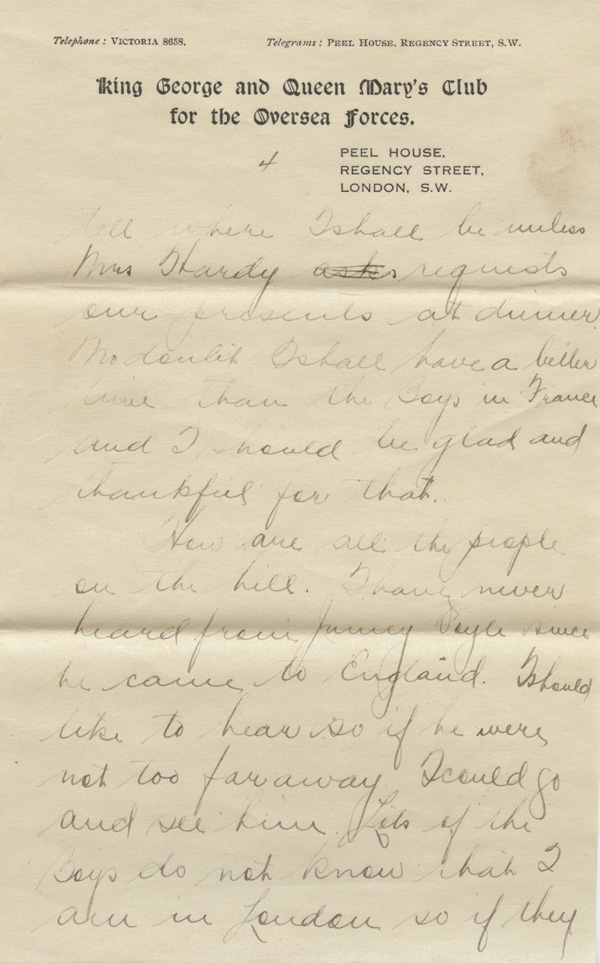 Telephone: VICTORIA 8658. Telegrams: PEEL HOUSE, REGENCY STREET, S.W.
King George and Queen Mary's Club
for the Oversea Forces.
4
PEEL HOUSE,
REGENCY STREET,
LONDON, S.W.
tell where I shall be unless
Mrs Hardy asks requests
our presents at dinner.
No doubt I shall have a better
time than the boys in France
and I should be glad and
thankful for that.
How are all the people
on the hill. I have never
heard from Jimmy Doyle since
he came to England. I should
like to hear so if he were
not too far away I could go
and see him. Lots of the
boys do not know that I
am in London so if they